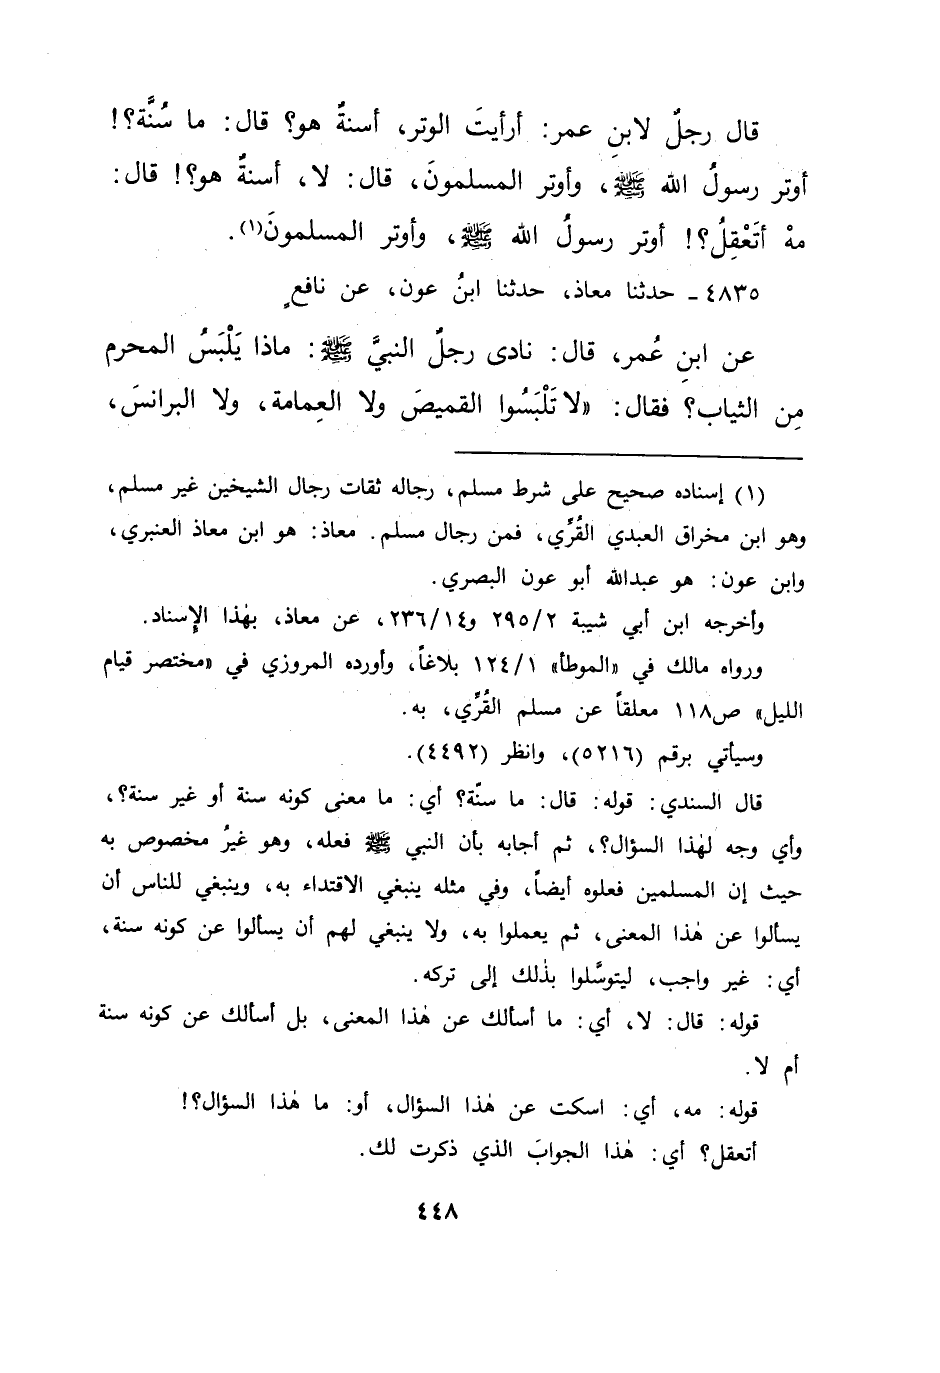 قال رجلٌ لابنِ عمر: أرأيتَ الوتر، أسنةٌ هو؟ قال: ما سُنَّة؟!
أوتر رسولُ الله ﷺ، وأوتر المسلمونَ، قال: لا، أسنةٌ هو؟! قال:
مهْ أتَعْقِلُ؟! أوتر رسولُ الله ﷺ، وأوتر المسلمونَ(١).
٤٨٣٥ ـ حدثنا معاذ، حدثنا ابنُ عون، عن نافعٍ
عن ابنِ عُمر، قال: نادى رجلٌ النبيَّ ﷺ: ماذا يَلْبَسُ المحرم
مِن الثياب؟ فقال: «لا تَلْبَسُوا القميصَ ولا العِمامة، ولا البرانسَ،
(١) إسناده صحيح على شرط مسلم، رجاله ثقات رجال الشيخين غير مسلم،
وهو ابن مخراق العبدي القُرِّي، فمن رجال مسلم. معاذ: هو ابن معاذ العنبري،
وابن عون: هو عبدالله أبو عون البصري.
وأخرجه ابن أبي شيبة ٢٩٥/٢ و٢٣٦/١٤، عن معاذ، بهٰذا الإسناد.
ورواه مالك في «الموطأ» ١٢٤/١ بلاغاً، وأورده المروزي في «مختصر قيام
الليل» ص١١٨ معلقاً عن مسلم القُرِّي، به.
وسيأتي برقم (٥٢١٦)، وانظر (٤٤٩٢).
قال السندي: قوله: قال: ما سنّة؟ أي: ما معنى كونه سنة أو غير سنة؟،
وأي وجه لهٰذا السؤال؟، ثم أجابه بأن النبي ﷺ فعله، وهو غيرُ مخصوص به
حيث إن المسلمين فعلوه أيضاً، وفي مثله ينبغي الاقتداء به، وينبغي للناس أن
يسألوا عن هٰذا المعنى، ثم يعملوا به، ولا ينبغي لهم أن يسألوا عن كونه سنة،
أي: غير واجب، ليتوسَّلوا بذٰلك إلى تركه.
قوله: قال: لا، أي: ما أسألك عن هٰذا المعنى، بل أسألك عن كونه سنة
أم لا.
قوله: مه، أي: اسكت عن هٰذا السؤال، أو: ما هٰذا السؤال؟!
أتعقل؟ أي: هٰذا الجوابَ الذي ذكرت لك.
٤٤٨